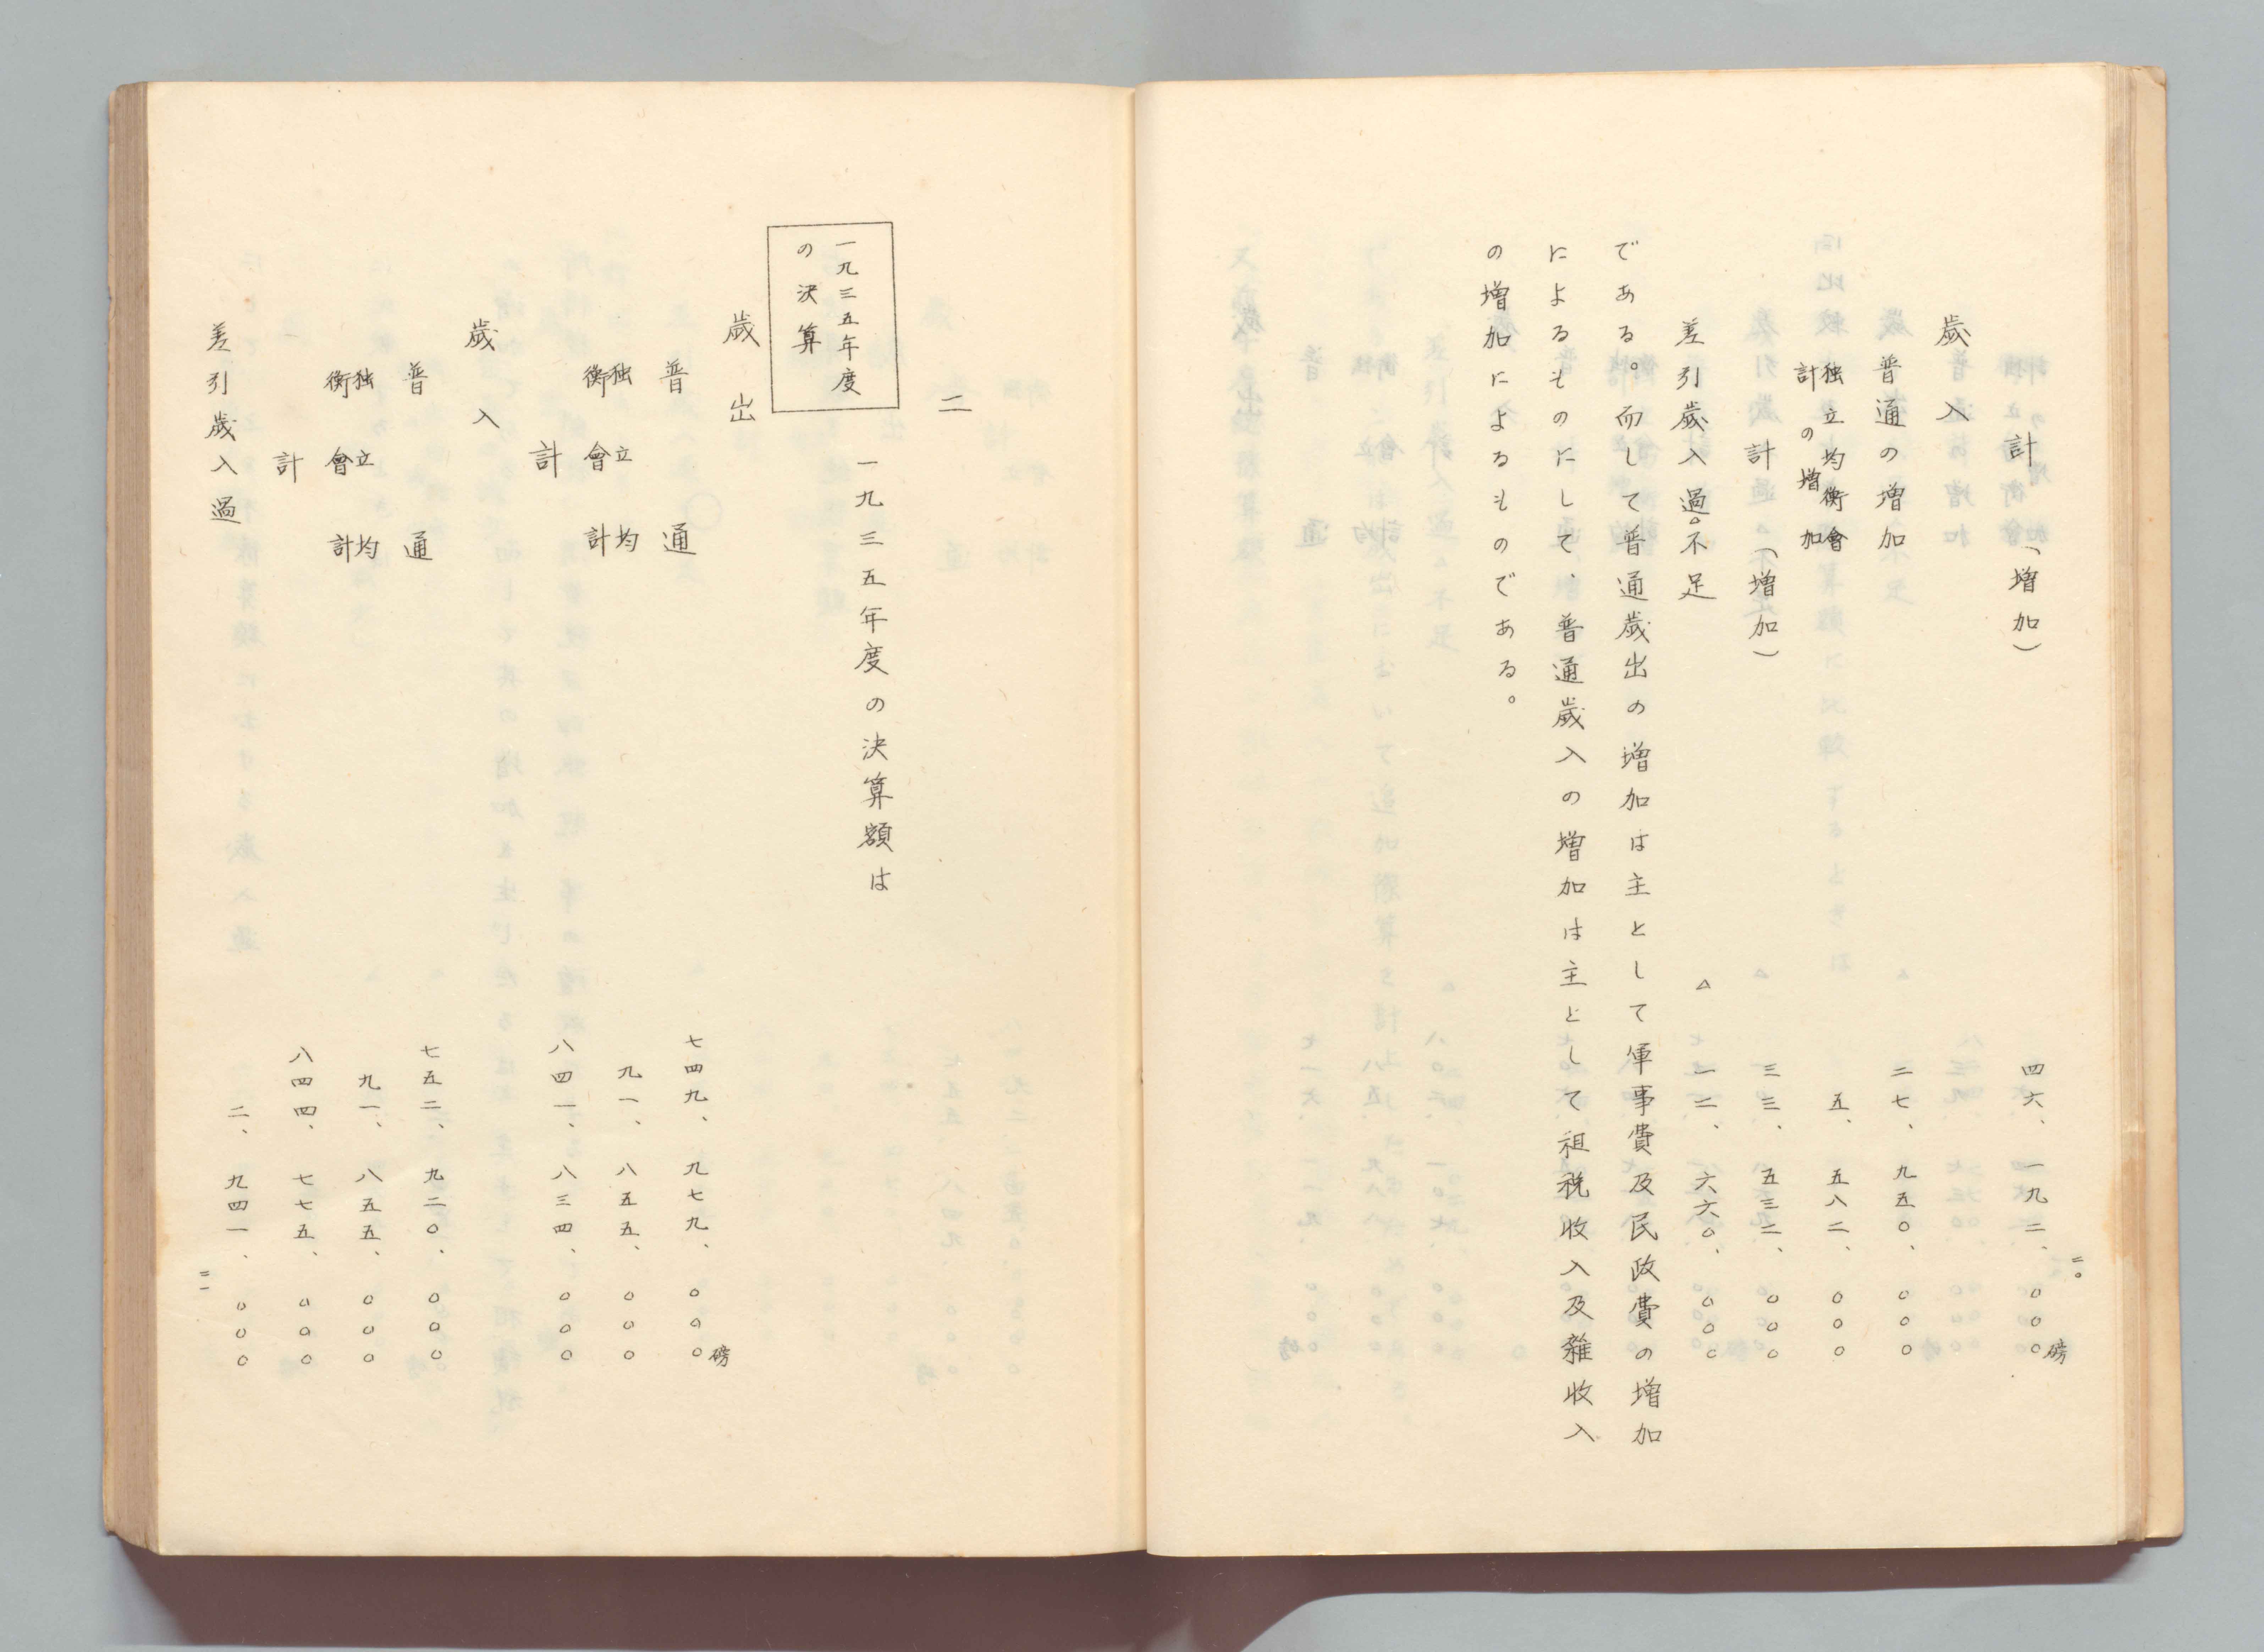 計（増加）　四六、一九二、〇〇〇磅
歳入
普通の増加　二七、九五〇、〇〇〇
独立均衡會計の増加　五、五八二、〇〇〇
計（増加）　三三、五三二、〇〇〇
差引歳入過。不足　△一二、六六〇、〇〇〇
である。而して普通歳出の増加は主として軍事費及民政費の増加
によるものにして、普通歳入の増加は主として租税收入及雑收入
の増加によるものである。
二〇
二
一九三五年度の決算
一九三五年度の決算額は
歳出
普通　七四九、九七九、〇〇〇磅
独立均衡會計　九一、八五五、〇〇〇
計　八四一、八三四、〇〇〇
歳入
普通　七五二、九二〇、〇〇〇
独立均衡會計　九一、八五五、〇〇〇
計　八四四、七七五、〇〇〇
差引歳入過　二、九四一、〇〇〇
二一